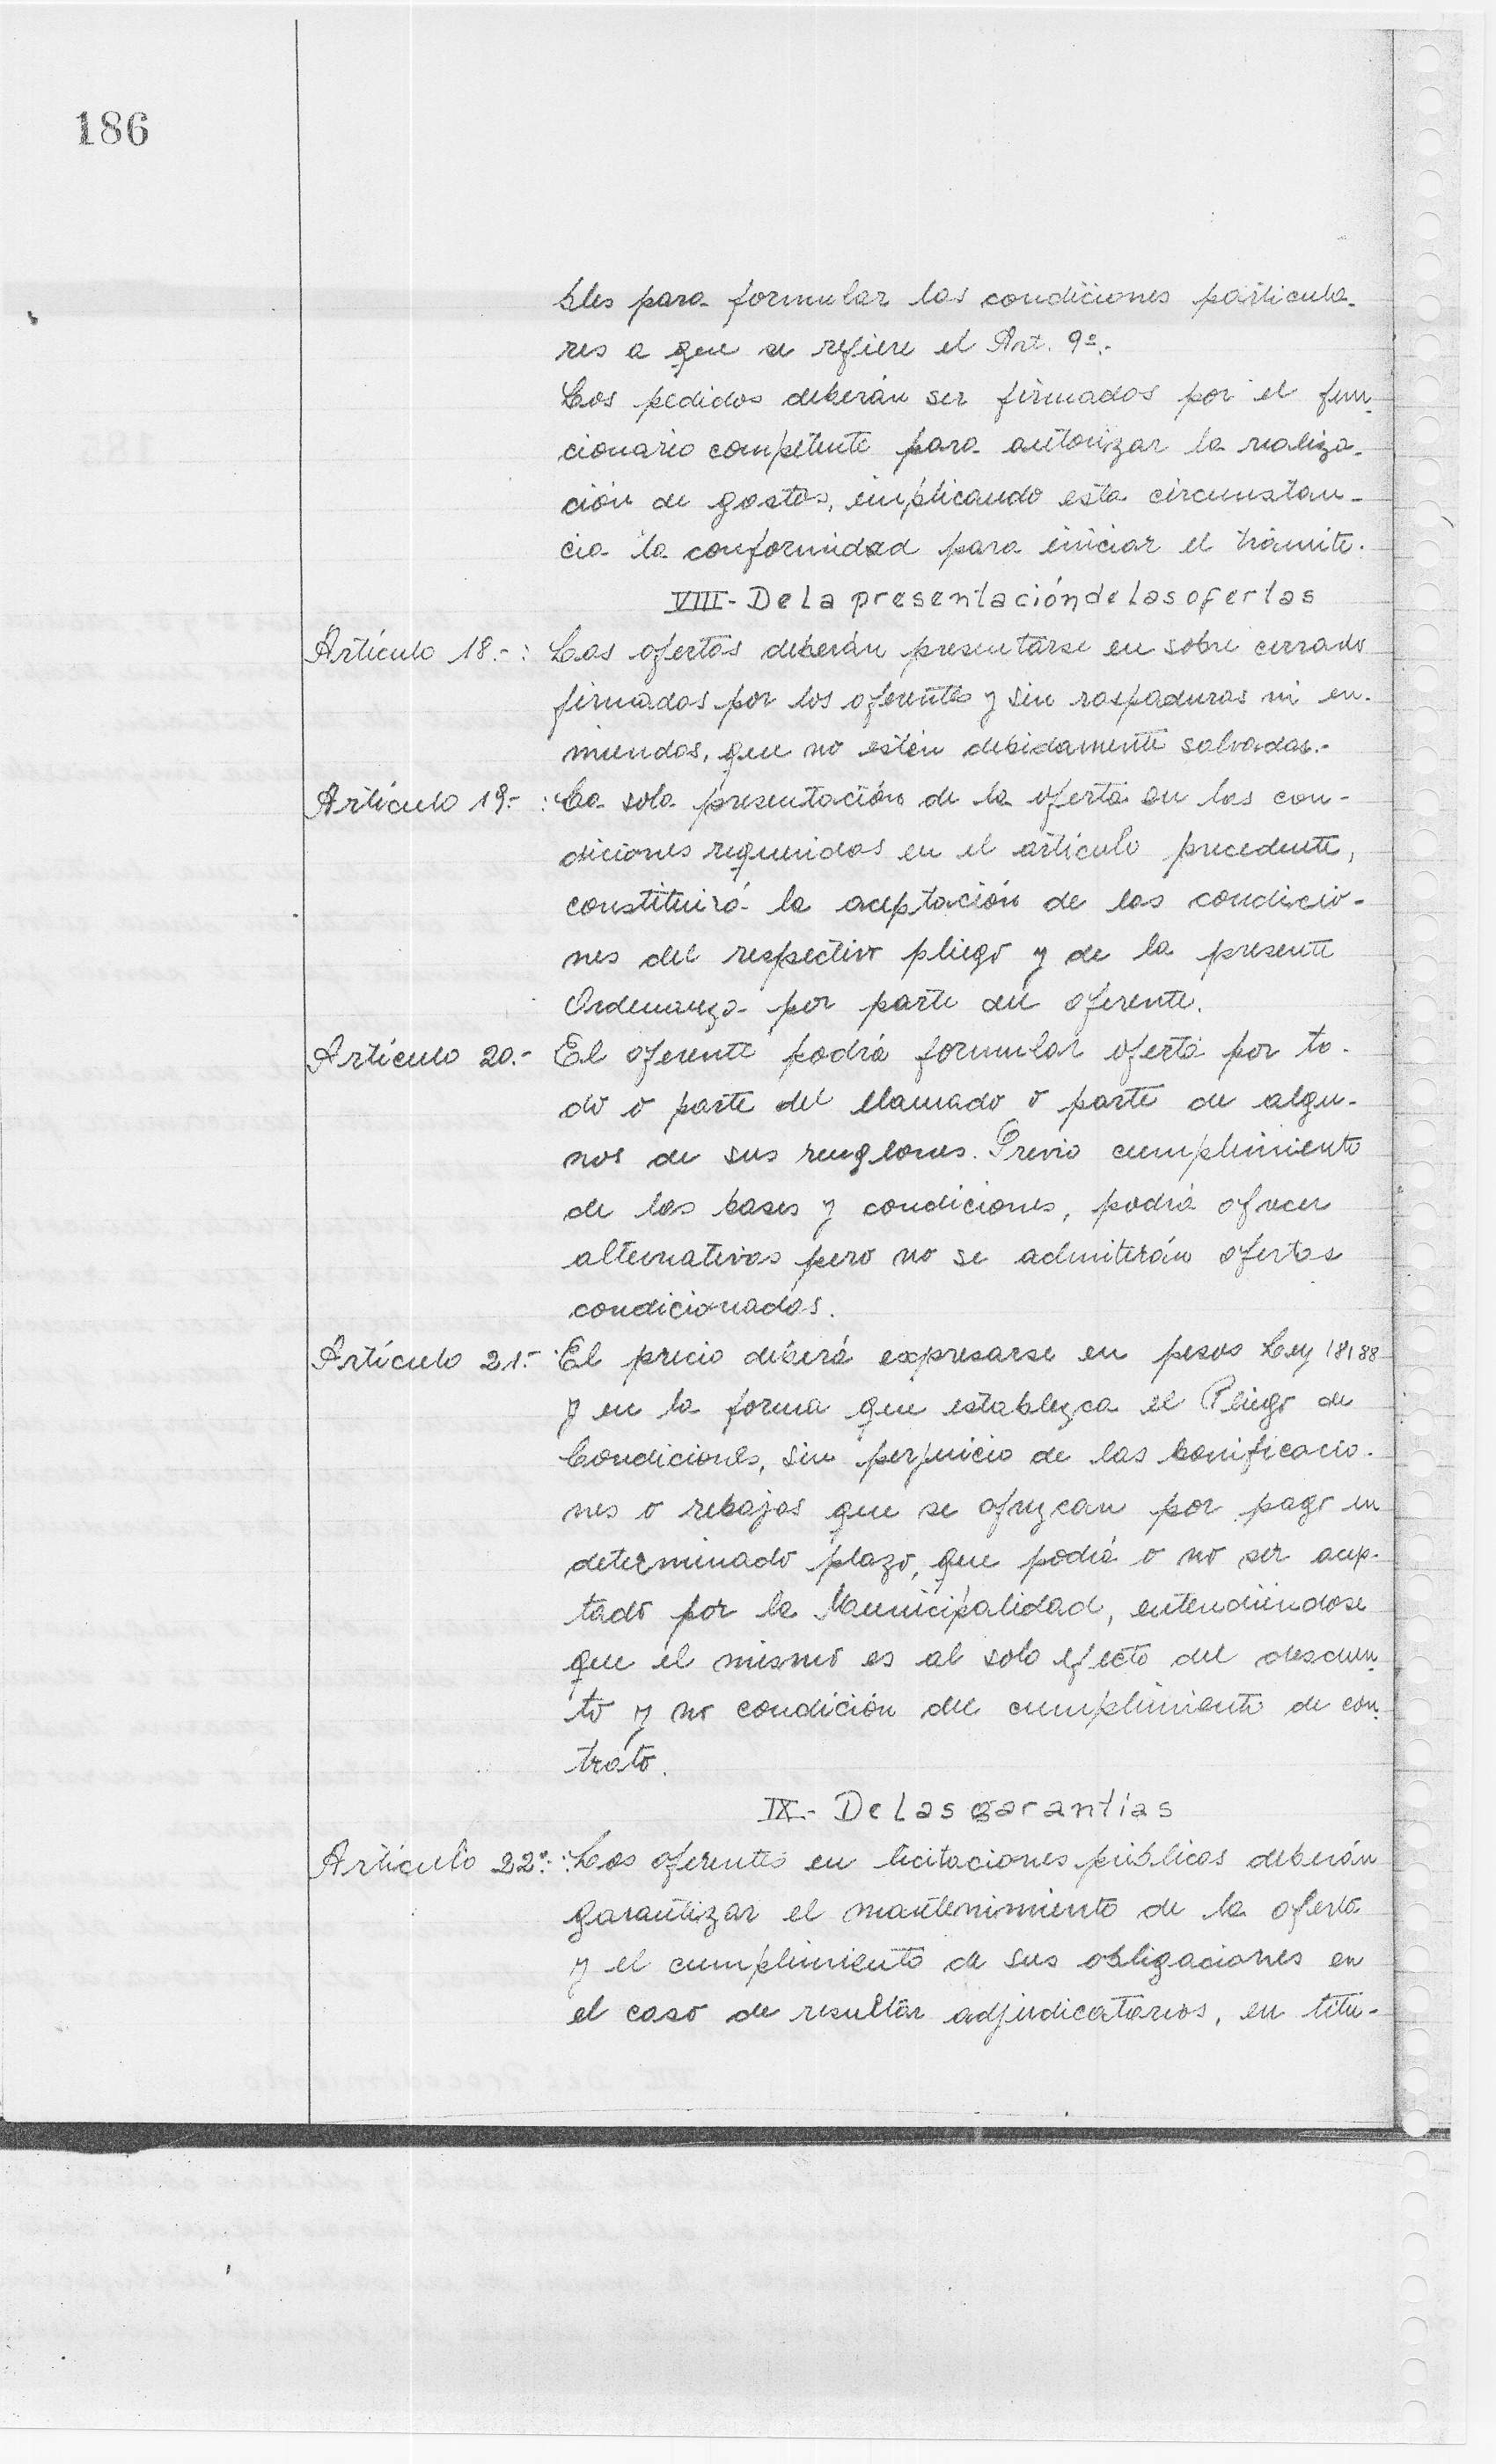 186
bles para formular las condiciones particula-
res a que se refiere el Art. 9º.-
Los pedidos deberán ser firmados por el fun-
cionario competente para autorizar la realiza-
ción de gastos, implicando esta circunstan-
cia la conformidad para iniciar el trámite.
VIII- De la presentación de las ofertas
Artículo 18.-: Las ofertas deberán presentarse en sobre cerrado
firmadas por los oferentes y sin raspaduras ni en-
miendas, que no estén debidamente salvadas.-
Artículo 19.- : La sola presentación de la oferta en las con-
diciones requeridas en el artículo precedente,
constituirá la aceptación de las condicio-
nes del respectivo pliego y de la presente
Ordenanza por parte del oferente.
Artículo 20.- El oferente podrá formular oferta por to-
do o parte del llamado o parte de algu-
nos de sus renglones. Previo cumplimiento
de las bases y condiciones, podrá ofrecer
alternativas pero no se admitirán ofertas
condicionadas.
Artículo 21.- El precio deberá expresarse en pesos Ley 18188
y en la forma que establezca el Pliego de
Condiciones, sin perjuicio de las bonificacio-
nes o rebajas que se ofrezcan por pago en
determinado plazo, que podrá o no ser acep-
tado por la Municipalidad, entendiéndose
que el mismo es al solo efecto del descuen-
to y no condición del cumplimiento de con-
trato.
IX.- De las garantías
Artículo 22º.-: Los oferentes en licitaciones públicas deberán
garantizar el mantenimiento de la oferta
y el cumplimiento de sus obligaciones en
el caso de resultar adjudicatarios, en títu-